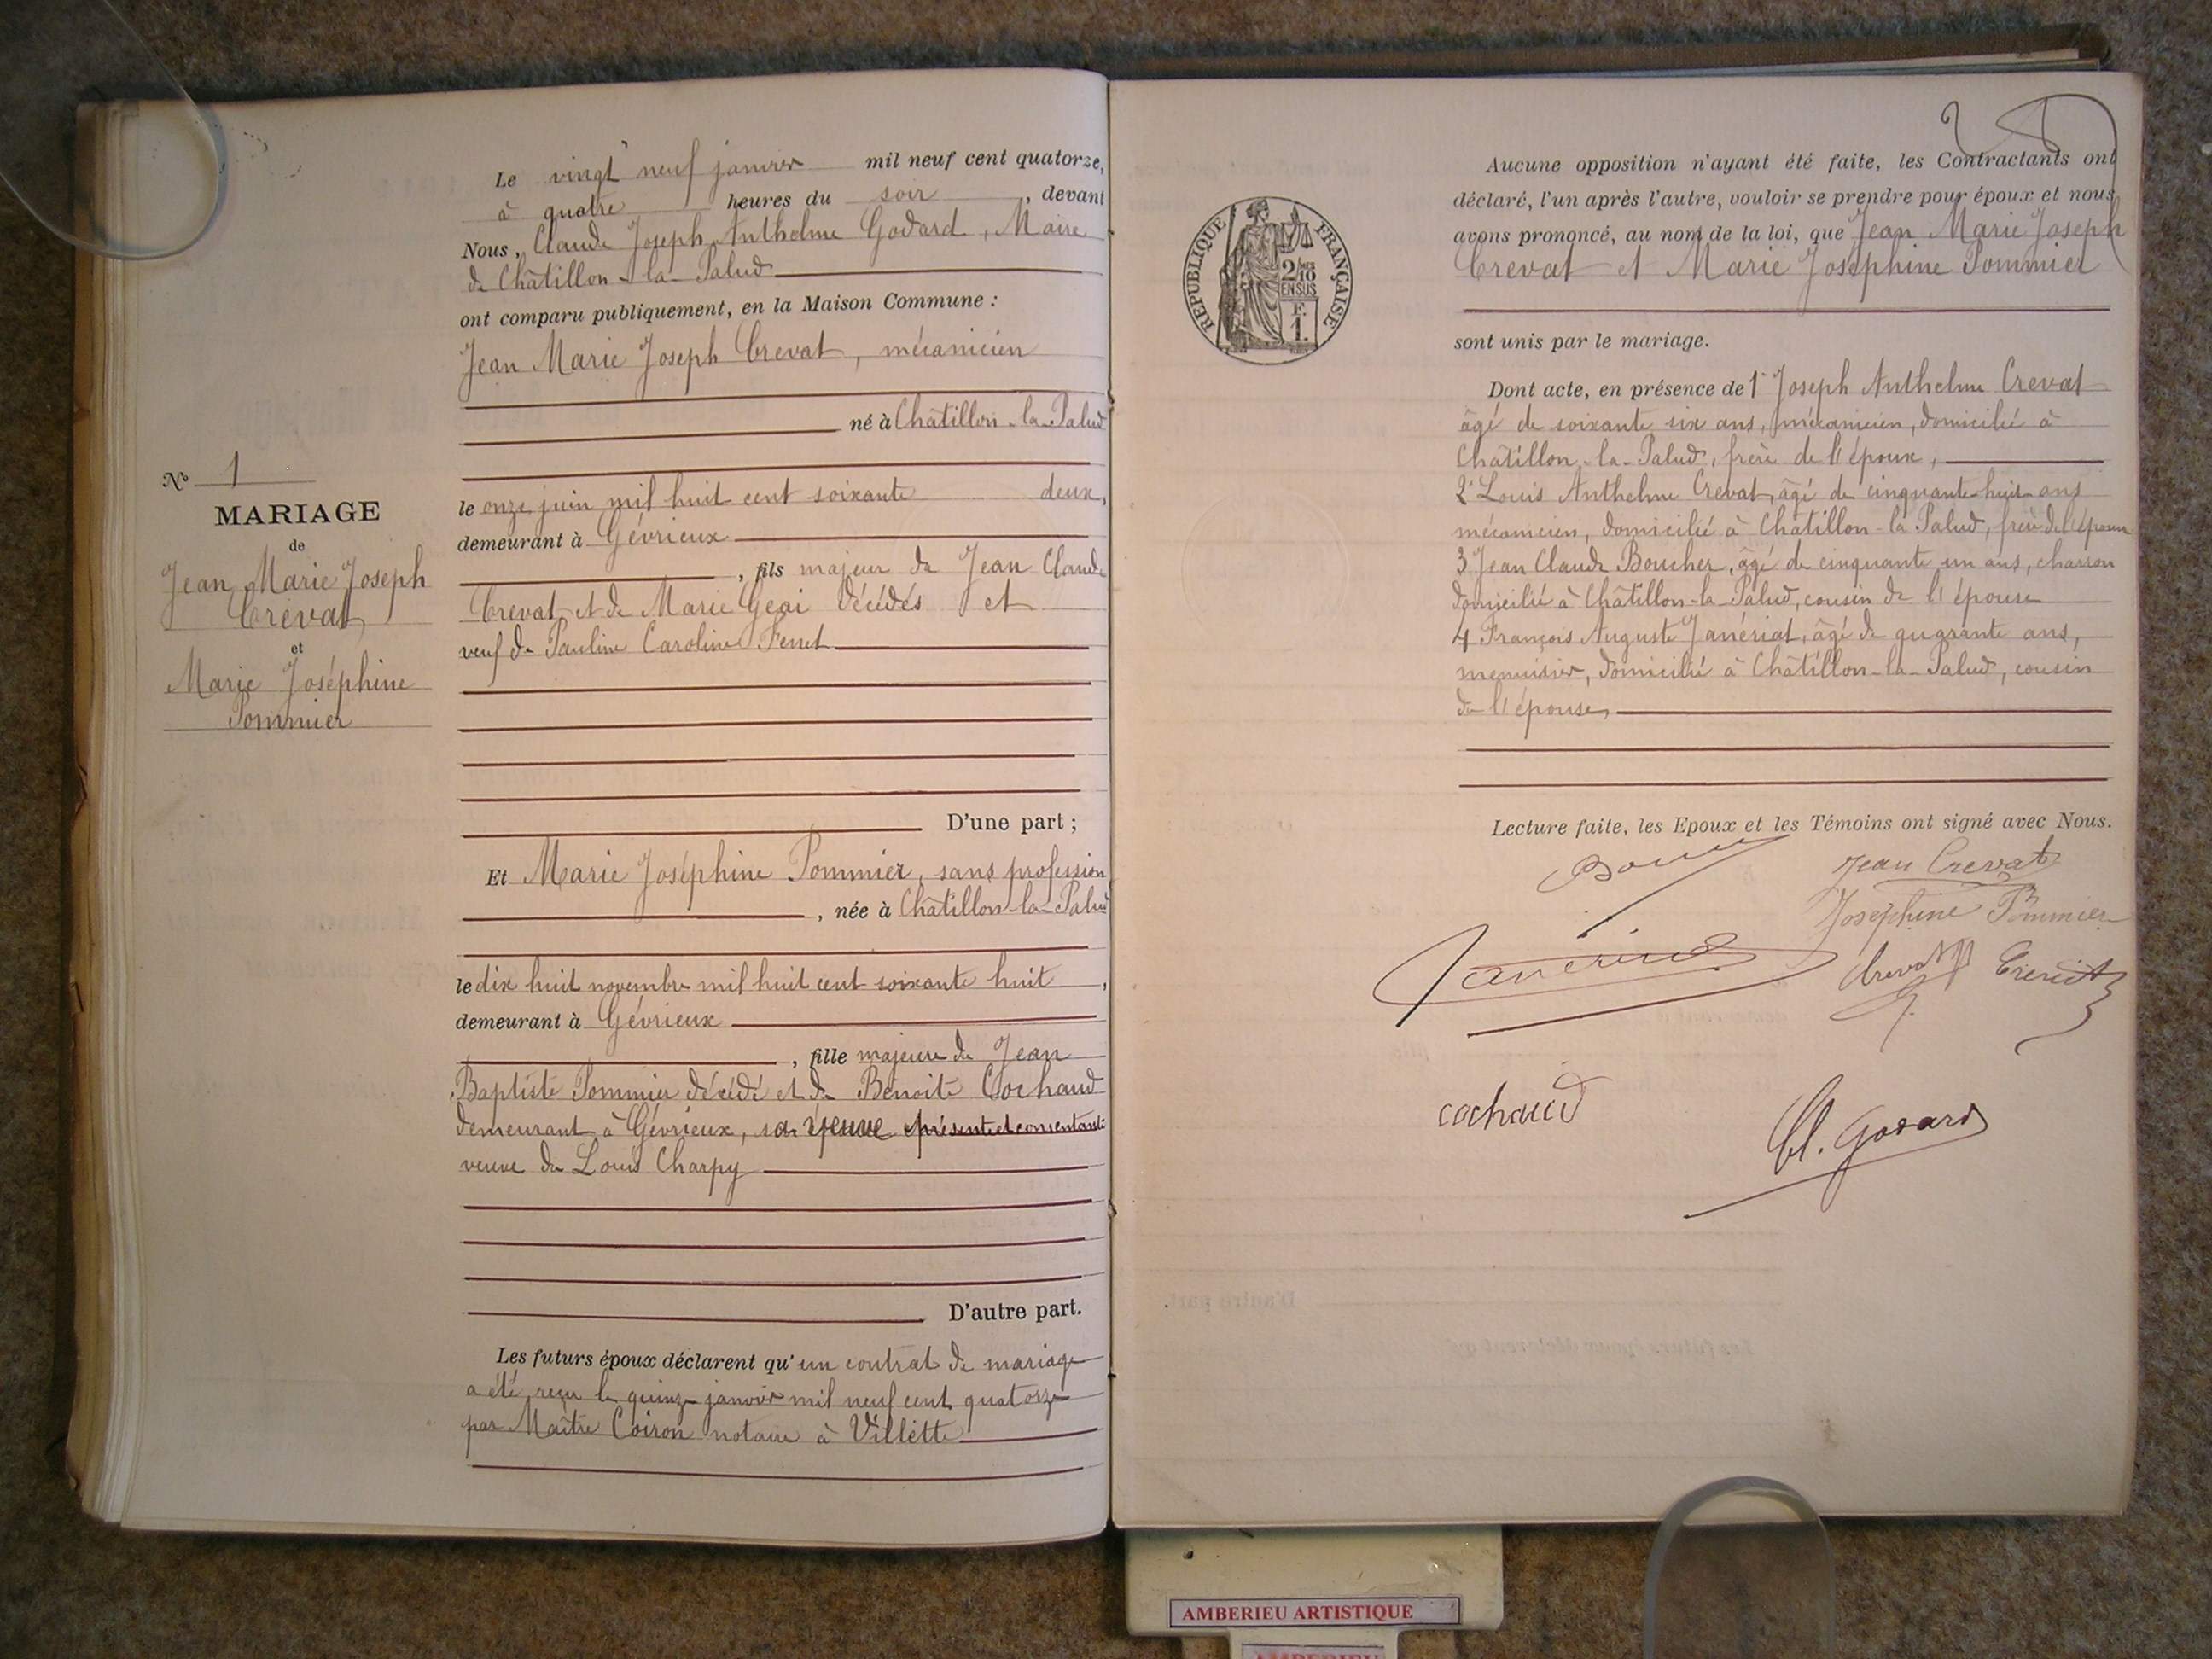 Le vingt neuf janvier mil neuf cent quatorze,
à quatre heures du soir, devant
Nous, Claude Joseph Anthelme Godard, Maire
de Châtillon-la-Palud
ont comparu publiquement, en la Maison Commune :
Jean Marie Joseph Crevat, mécanicien
né à Châtillon-la-Palud
le onze juin mil huit cent soixante deux,
demeurant à Gévrieux
, fils majeur de Jean Claude
Crevat et de Marie Geai décédés et
veuf de Pauline Caroline Ferret
D'une part ;
Et Marie Joséphine Pommier, sans profession
, née à Châtillon-la-Palud
le dix huit novembre mil huit cent soixante huit,
demeurant à Gévrieux
, fille majeure de Jean
Baptiste Pommier décédé et de Benoite Cochaud
demeurant à Gévrieux, sa veuve présente et consentante
veuve de Louis Charpy
D'autre part.
Les futurs époux déclarent qu'un contrat de mariage
a été reçu le quinze janvier mil neuf cent quatorze
par Maître Coiron notaire à Villette
No 1
MARIAGE
de
Jean Marie Joseph
Crevat
et
Marie Joséphine
Pommier
RÉPUBLIQUE FRANÇAISE
2/10
EN SUS
F.
1.
Aucune opposition n'ayant été faite, les Contractants ont
déclaré, l'un après l'autre, vouloir se prendre pour époux et nous
avons prononcé, au nom de la loi, que Jean Marie Joseph
Crevat et Marie Joséphine Pommier
sont unis par le mariage.
Dont acte, en présence de 1° Joseph Anthelme Crevat
âgé de soixante six ans, mécanicien, domicilié à
Châtillon-la-Palud, frère de l'époux,
2° Louis Anthelme Crevat, âgé de cinquante-huit ans
mécanicien, domicilié à Châtillon-la-Palud, frère de l'époux
3 Jean Claude Boucher, âgé de cinquante un ans, charron
domicilié à Châtillon-la-Palud, cousin de l'épouse
4 François Auguste Janériat, âgé de quarante ans,
menuisier, domicilié à Châtillon-la-Palud, cousin
de l'épouse,
Lecture faite, les Epoux et les Témoins ont signé avec Nous.
Jean Crevat
Joséphine Pommier
Crevat
cochaud
Cl. Godard
AMBERIEU ARTISTIQUE
AMBERIEU